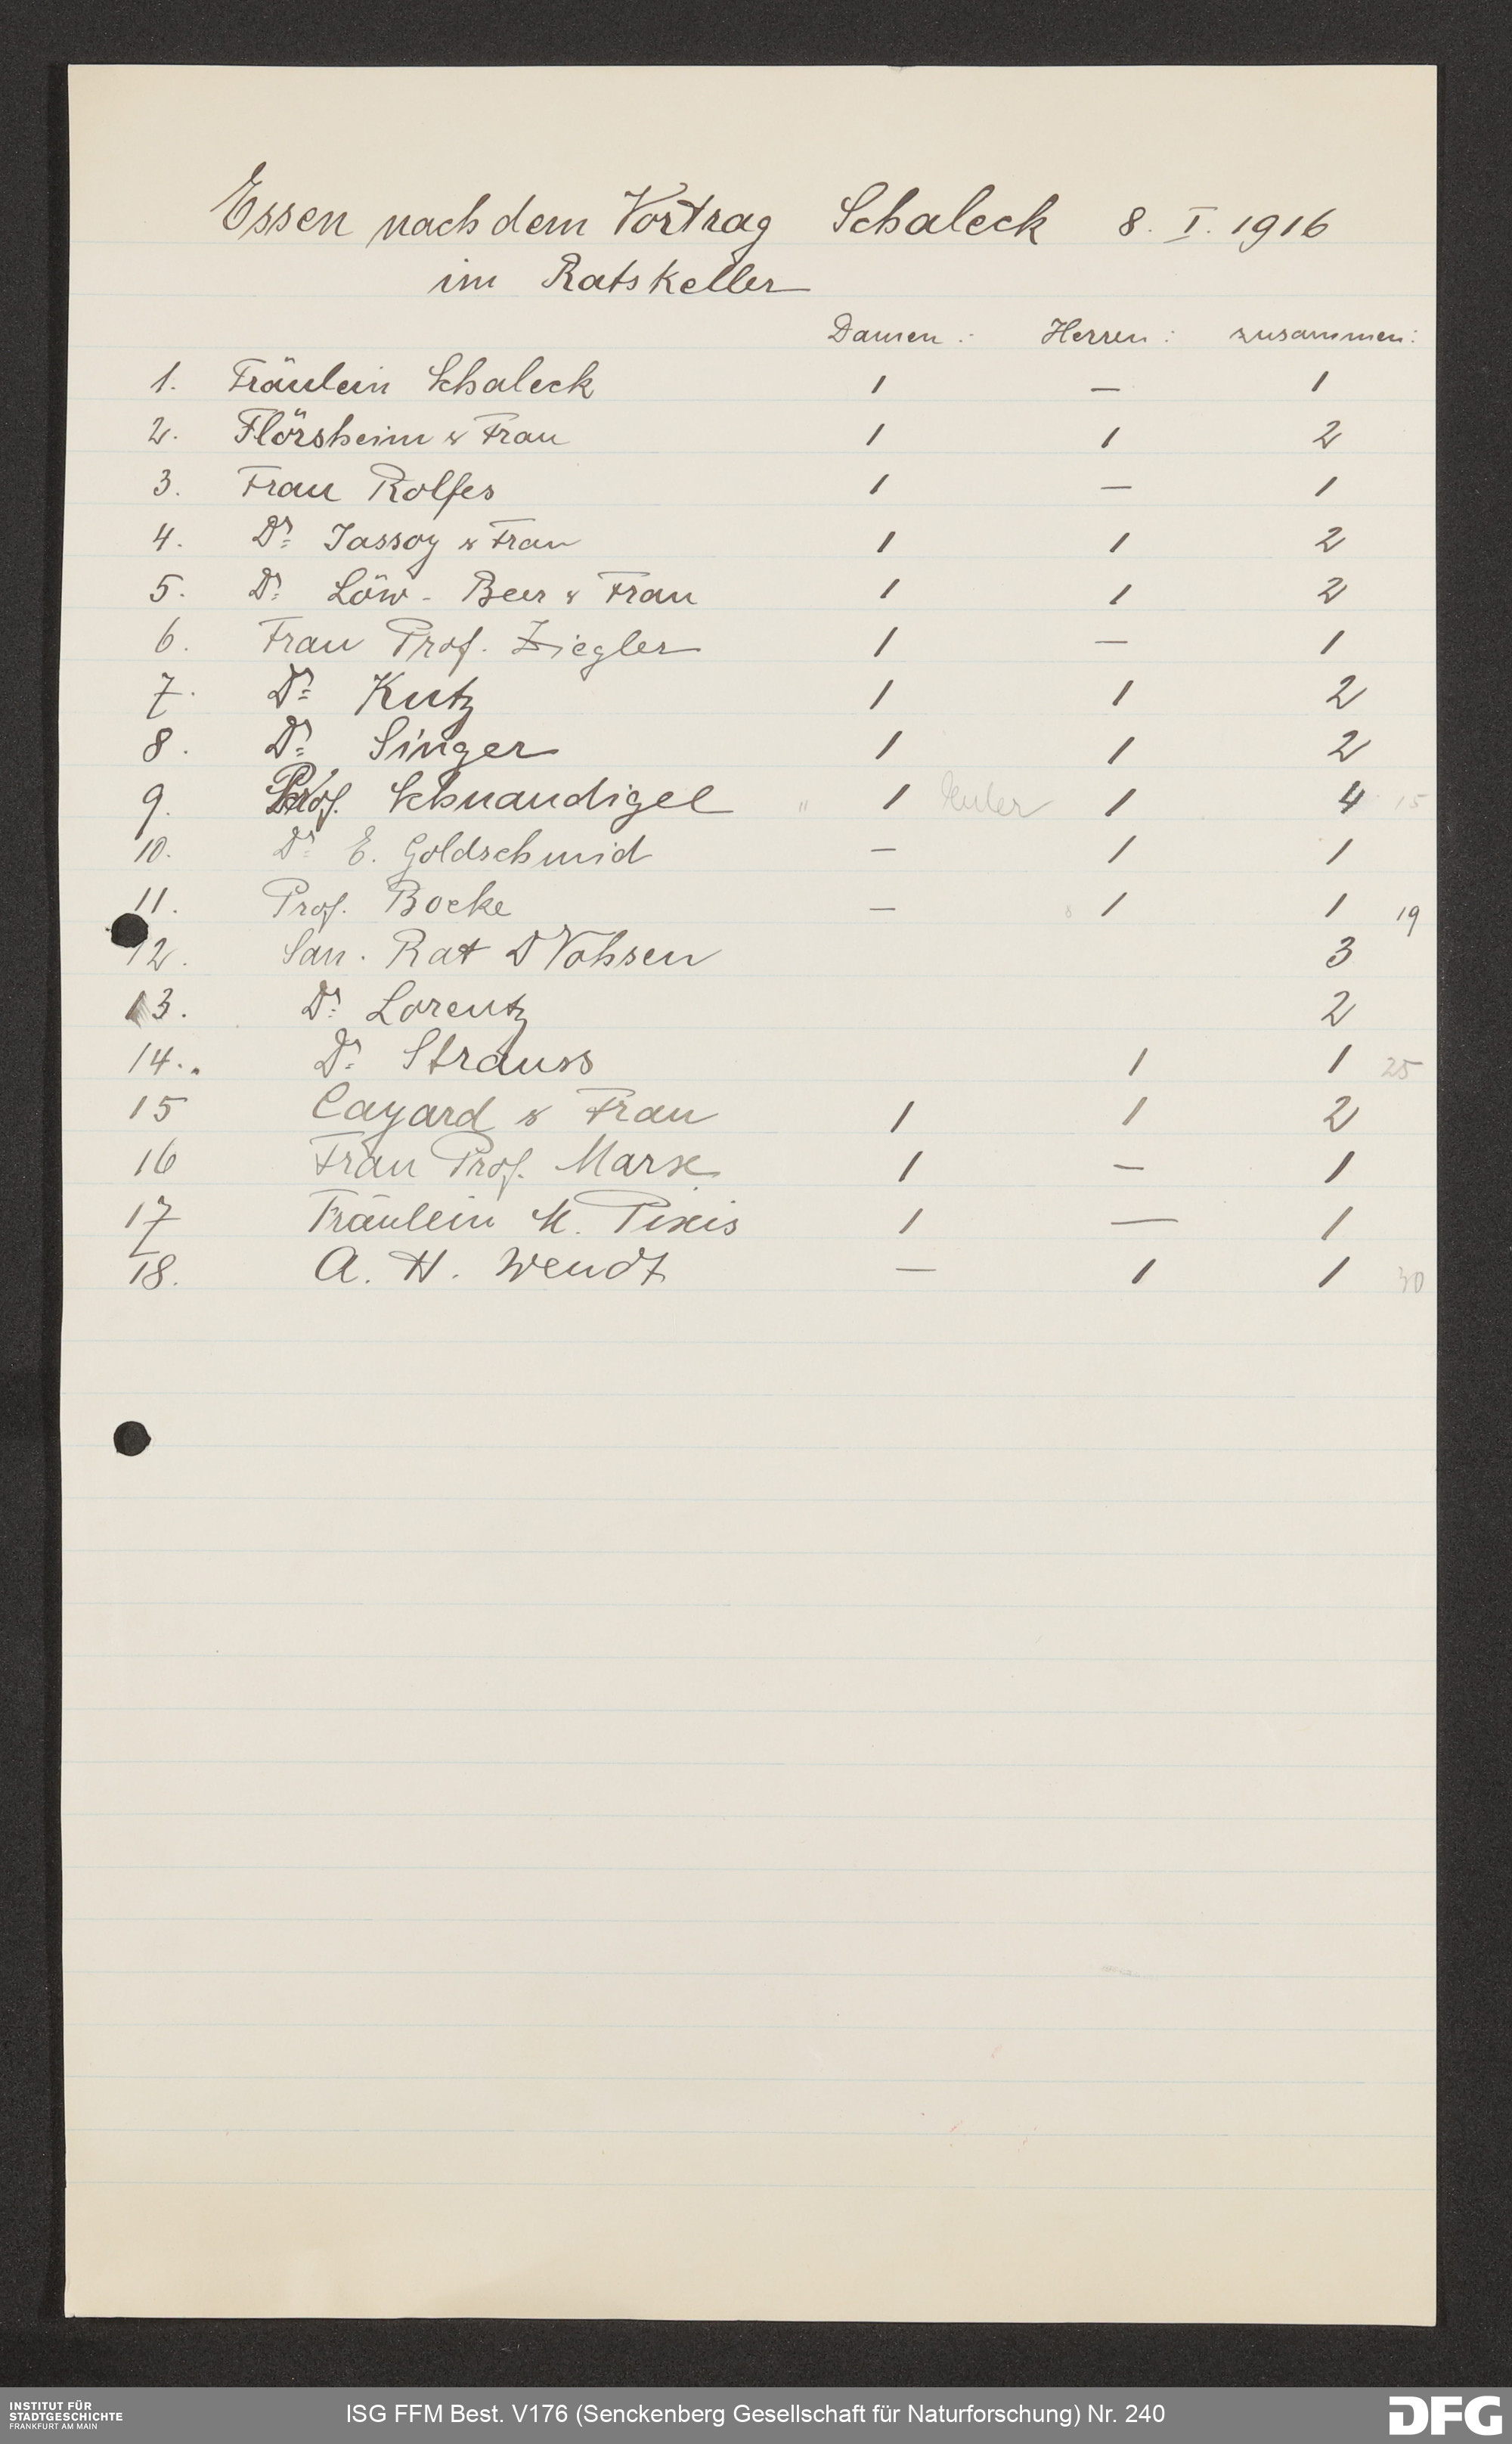 Essen nach dem Vortrag Schaleck 8. I. 1916
im Ratskeller
Damen: Herren: zusammen:
1. Fräulein Schaleck 1 — 1
2. Flörsheim & Frau 1 1 2
3. Frau Rolfes 1 — 1
4. Dr. Jassoy & Frau 1 1 2
5. Dr. Löw-Beer & Frau 1 1 2
6. Frau Prof. Ziegler 1 — 1
7. Dr. Kutz 1 1 2
8. Dr. Singer 1 1 2
9. Prof. Schnaudigel " 1 1 4 15
10. Dr. E. Goldschmid — 1 1
11. Prof. Boeke — 1 1 19
12. San. Rat D Vohsen 3
13. Dr. Lorentz 2
14. Dr. Strauss 1 1 25
15 Cayard & Frau 1 1 2
16 Frau Prof. Marx 1 — 1
17 Fräulein M. Pixis 1 — 1
18. A. H. Wendt — 1 1 30
INSTITUT FÜR
STADTGESCHICHTE
FRANKFURT AM MAIN
ISG FFM Best. V176 (Senckenberg Gesellschaft für Naturforschung) Nr. 240
DFG